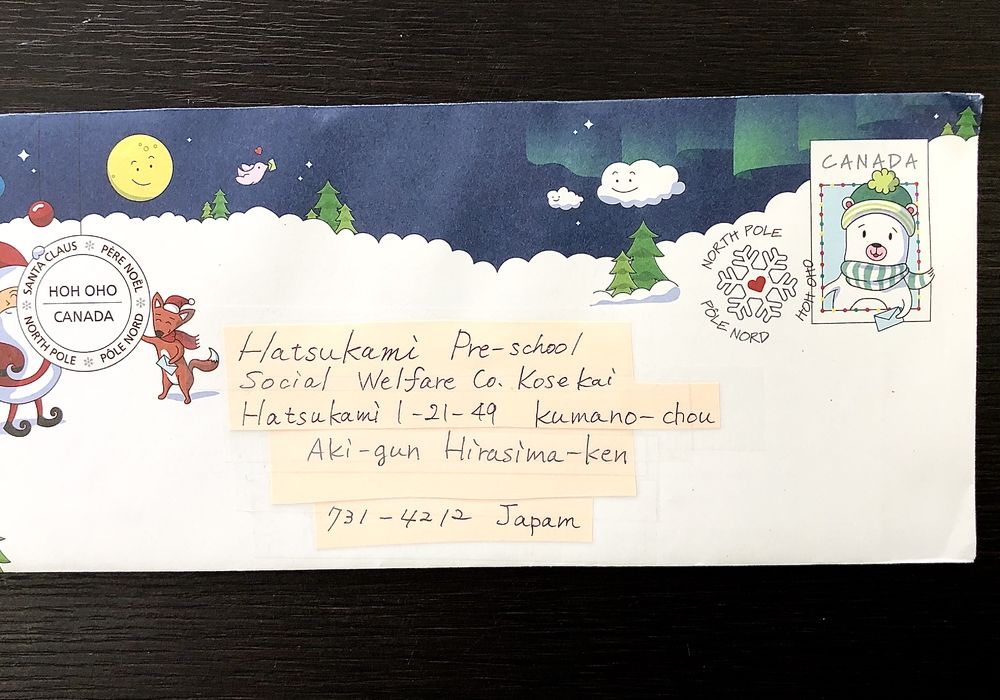 CANADA
NORTH POLE
PÔLE NORD
HOH OHO
SANTA CLAUS * PÈRE NOËL
HOH OHO
CANADA
NORTH POLE * PÔLE NORD
Hatsukami Pre-school
Social Welfare Co. Kosekai
Hatsukami 1-21-49 Kumano-chou
Aki-gun Hirasima-ken
731-4212 Japam